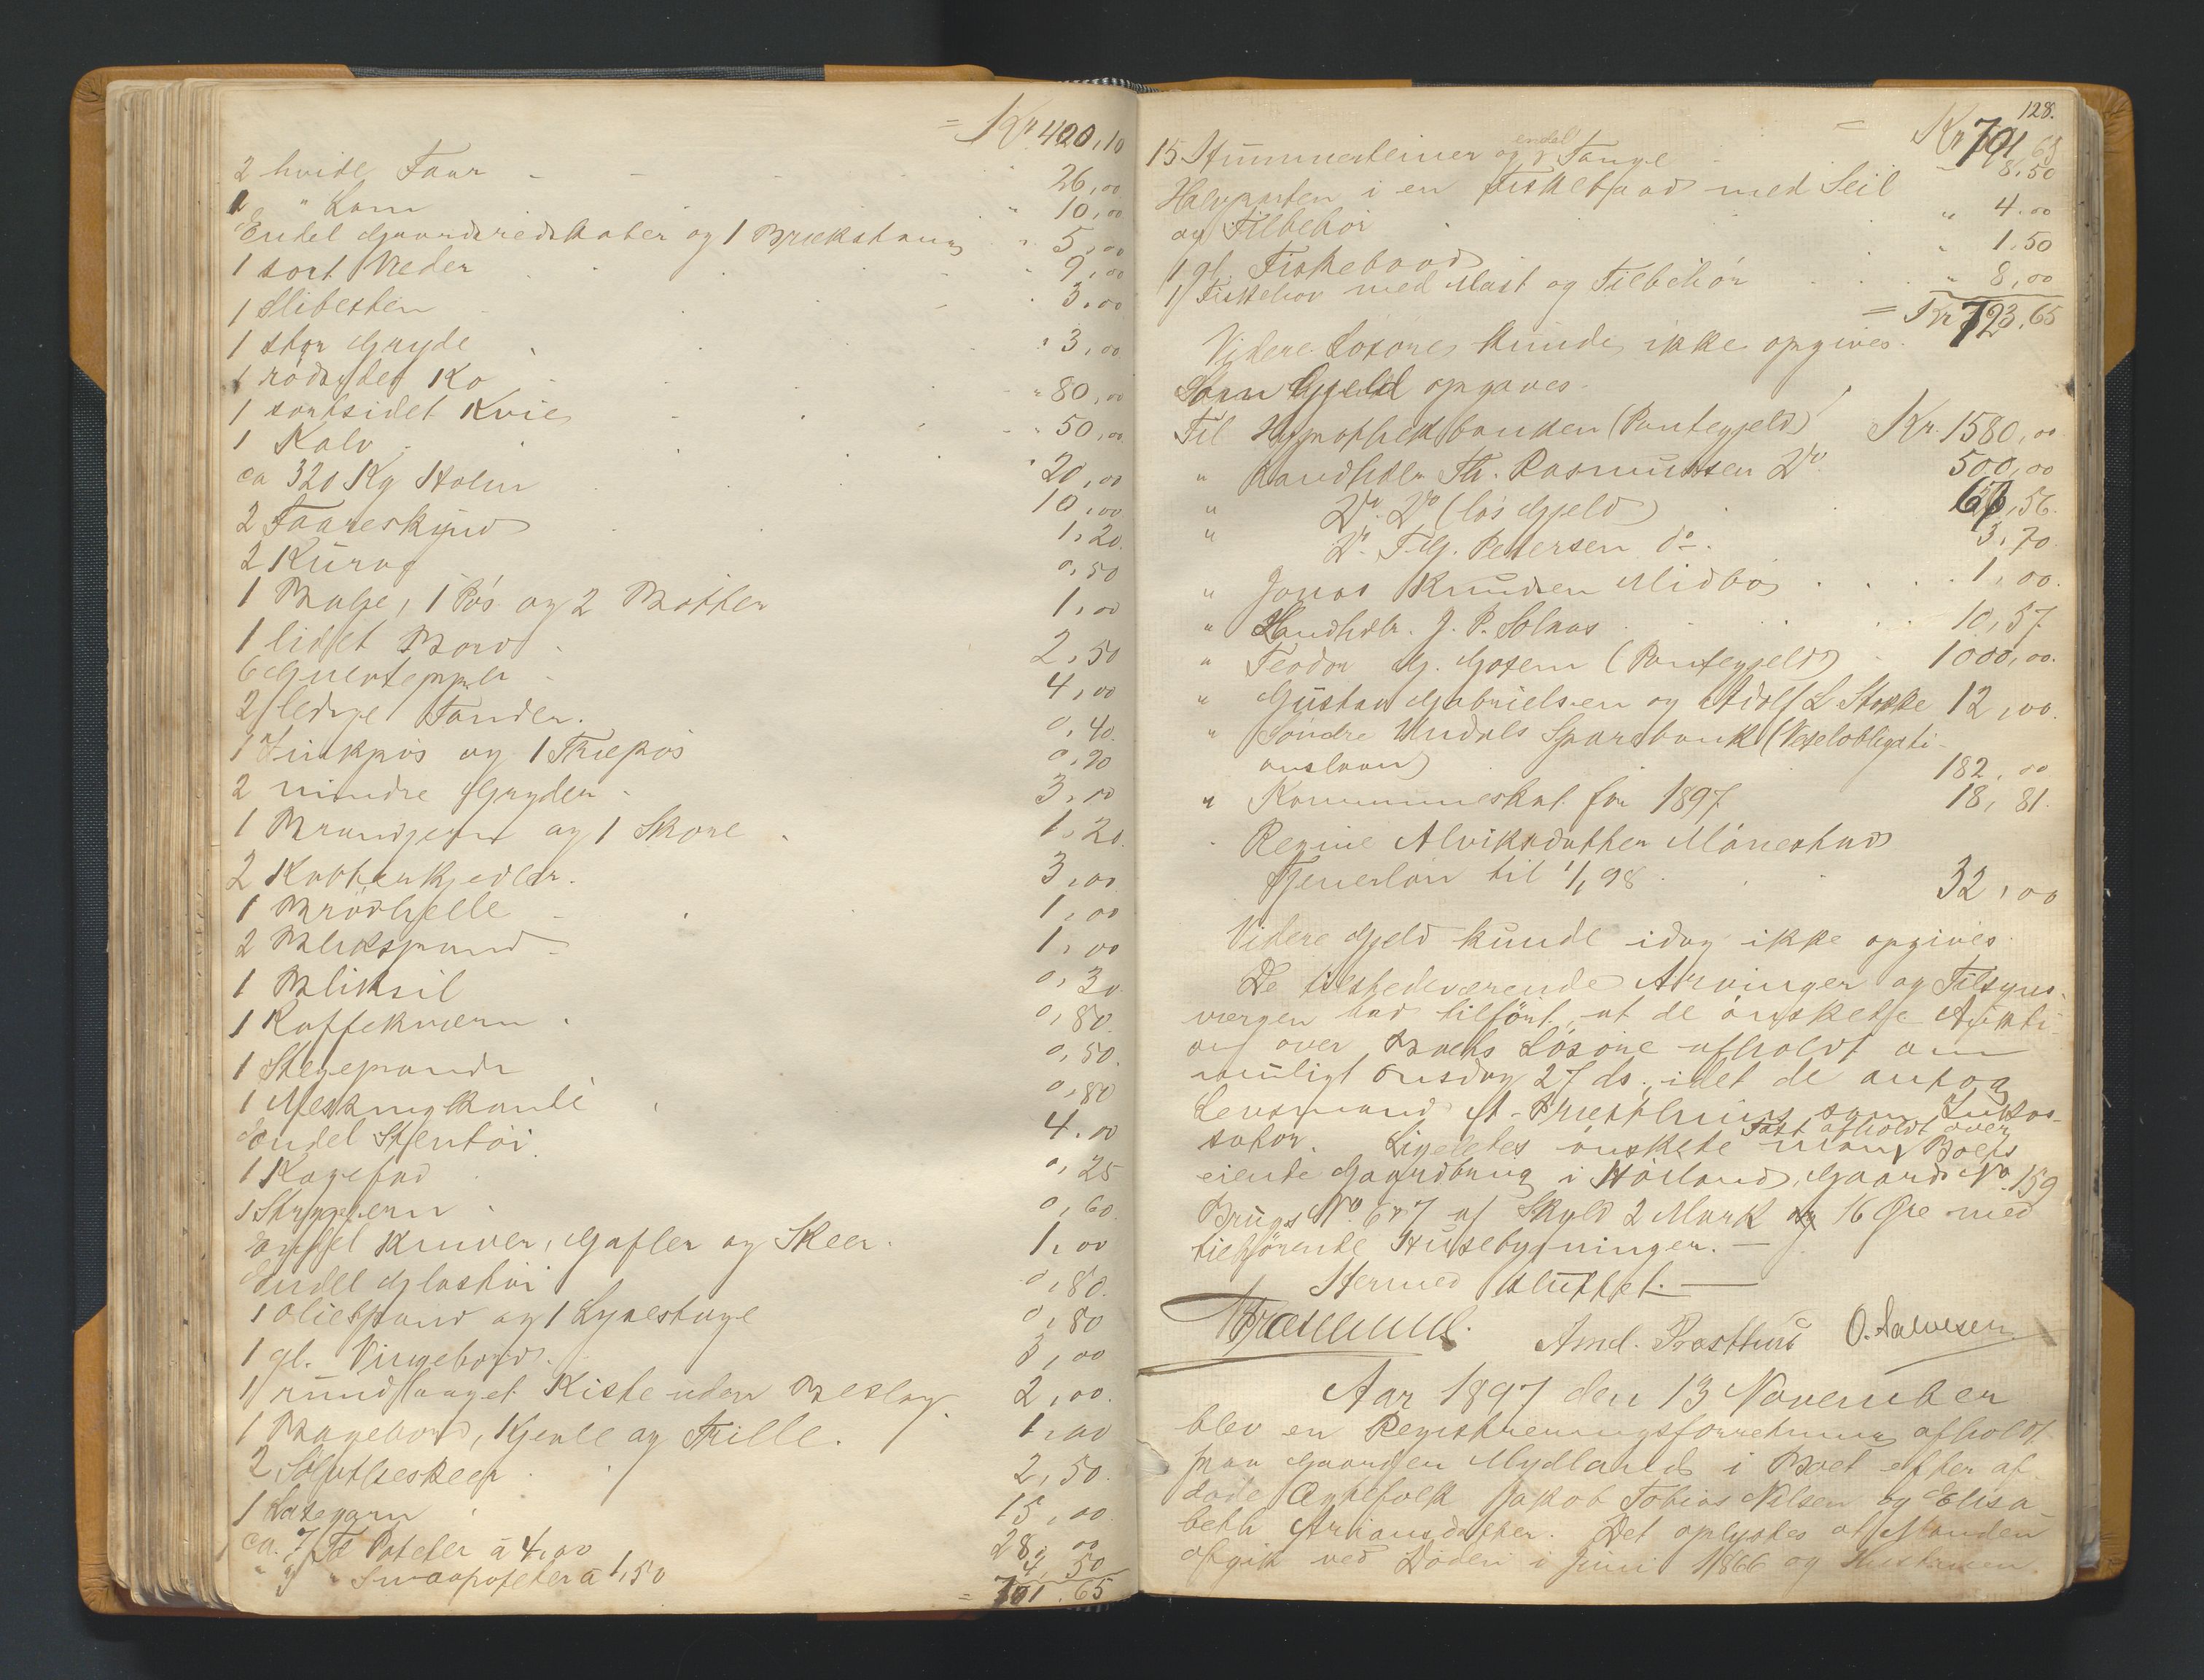 = Kr 420,10
2 hvide Faar - - - - 26,00
1 " Lam " 10,00
Endel Gaardsredskaber og 1 Brækstang " 5,00
1 sort Væder " 9,00
1 Slibesten - " 3,00
1 stor Gryde " 3,00
1 rødsidet Ko " 80,00
1 sortsidet Kvie - " 50,00
1 Kalv " 20,00
ca 320 Kg Halm 10,00
2 Faareskind 1,20
2 Kurve 0,50
1 Balje, 1 Pøs og 2 Bøtter 1,00
1 lidet Bord 2,50
6 Guldtepper 4,00
2 ledige Tønder. 0,40
1 Zinkpøs og 1 Træpøs 0,90
2 mindre Gryder - 3,00
1 Brandjern og 1 Skovl - 1,20
2 Kobberkjedler. 3,00
1 Brødhelle 1,00
2 Blikspand - 1,00
1 Bliksil 0,30
1 Kaffekværn . 0,80
1 Stegepande 0,50
1 Messingkande 0,80
Endel Stentøi 4,00
1 Kagefad 0,25
1 Strygejern . 0,60
Endel Kniver, Gafler og Skeer. 1,00
Endel Glastøi 0,80
1 Oliespand og 1 Lysestage 0,80
1 gl. Vingebord. 3,00
1 rundlaaget Kiste uden Beslag 2,00.
1 Bagebord, Kjevle og Trille. 1,00
2 Sølvtheskeer 2,50.
1 Laxegarn 15,00.
ca. 7 Td Poteter a 4,00 28,00
" 3 " Smaapoteter a 1,50 4,50
= 701.65
128.
= Kr 701,65
15 Hummerteiner og endel Tauge - " 8,50
Halvparten i en Fiskebaad med Seil
og Tilbehør " 4.00
1 gl. Fiskebaad " 1.50
1 Fiskehov med Mast og Tilbehør " 8,00
= Kr 723.65
Videre Løsøre kunde ikke opgives.
Som Gjeld opgaves.
Til Hypothekbanken (Pantegjeld) Kr. 1580,00
" Landhdlr Th. Rasmussen Do 500,00
" Do. Do (løs Gjeld) 56.
" Do. T. G. Pedersen do. 3,70
" Jonas Knudsen Midbø 1,00.
" Handhdlr. J. P. Solaas 10,57
" Teodor G. Gosem (Pantegjeld) - 1000,00.
" Gustav Gabrielsen og Adolf L Stokke 12,00.
" Søndre Undals Sparebank (Vexelobligati-
onslaan) 182,00
" Kommuneskat for 1897 18,81.
- Regine Alviksdatter Mønestad
Tjenerløn til 1/1 98 32,00
Videre Gjeld kunde idag ikke opgives.
De tilstedeværende Arvinger og Tilsyns-
værgen bad tilført, at de ønskede Aukti-
on over Boets Løsøre afholdt om
muligt Onsdag 27 ds., idet de antog
Lensmand A. Præsthuus som Inkas-
sator. Ligeledes ønskede man Taxt afholdt over Boets
eiende Gaardbrug i Høiland, Gaards No. 159
Brugs No. 6 & 7 af Skyld 2 Mark og 16 Øre med
tilhørende Husebygninger. -
Hermed sluttet. -
Amd. Præsthus O. Salvesen
Aar 1897 den 13 November
blev en Registreringsforretning afholdt
paa Gaarden Mydland i Boet efter af-
døde Ægtefolk Jakob Tobias Nilsen og Elisa-
beth Ariansdatter. Det oplystes at Manden
afgik ved Døden i Juni 1866 og Hustruen.